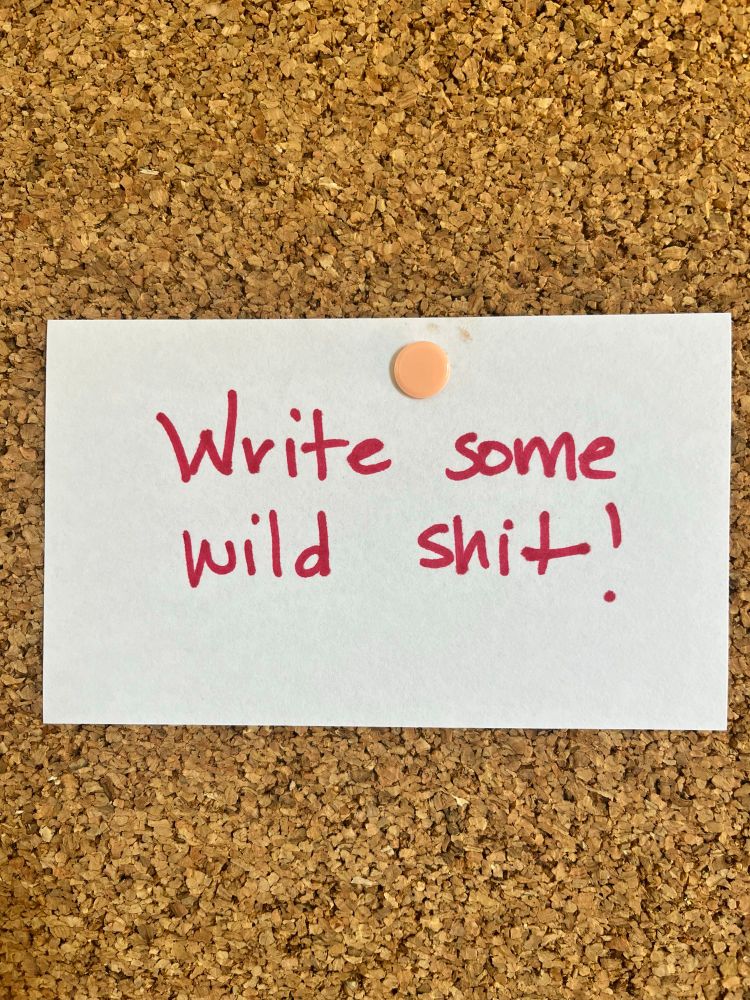 Write some
wild shit!